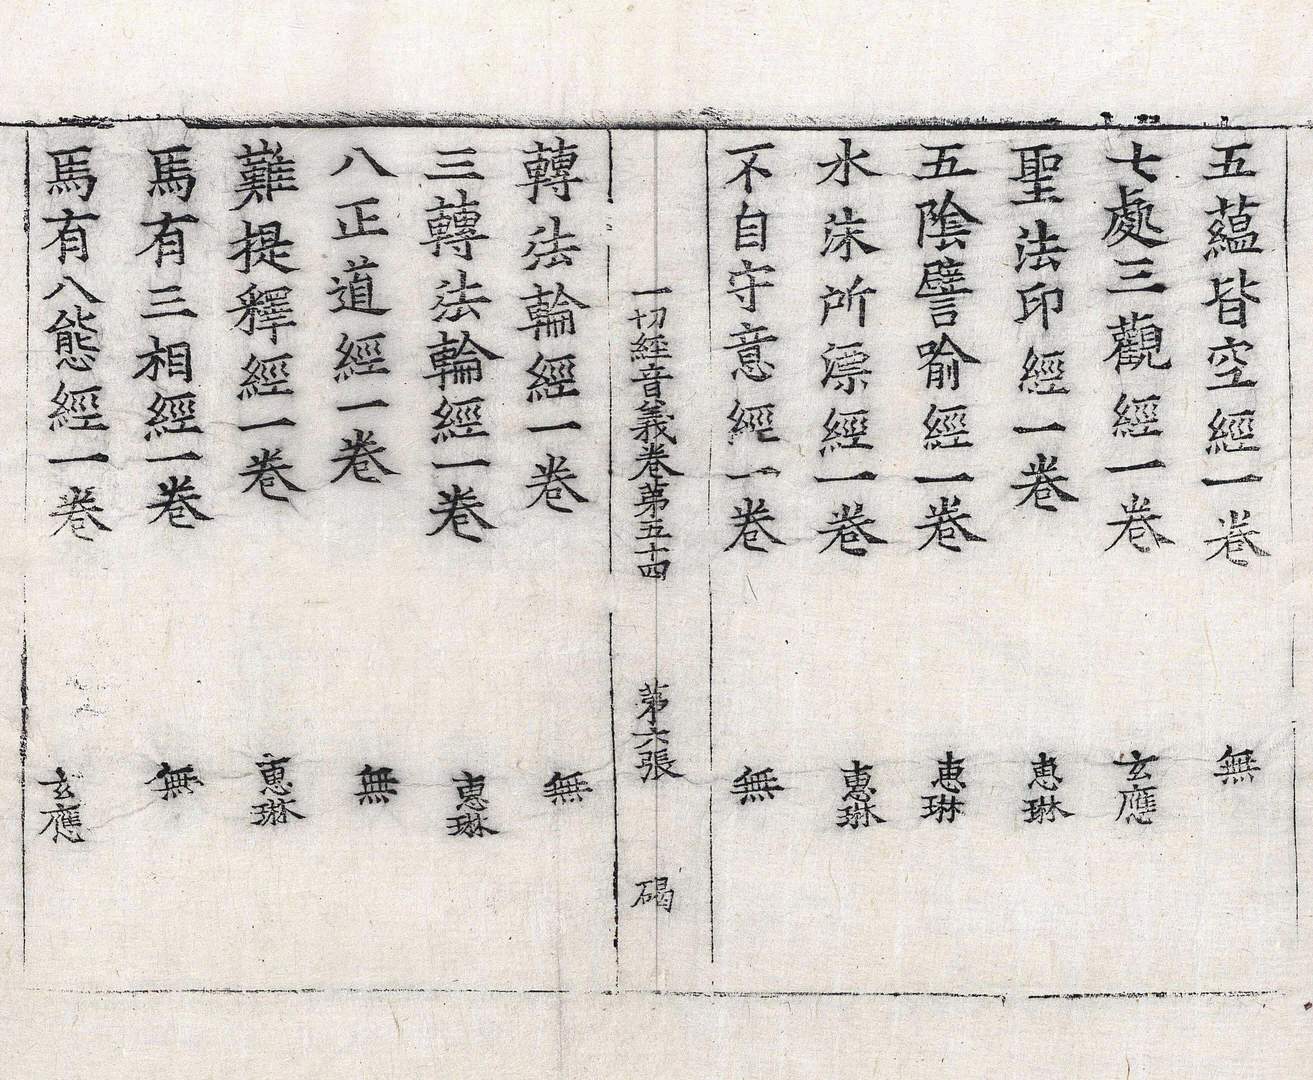 五蘊皆空經一卷 無
七處三觀經一卷 玄應
聖法印經一卷 惠琳
五陰譬喻經一卷 惠琳
水沫所漂經一卷 惠琳
不自守意經一卷 無
一切經音義卷第五十四 第六張 碣
轉法輪經一卷 無
三轉法輪經一卷 惠琳
八正道經一卷 無
難提釋經一卷 惠琳
馬有三相經一卷 無
馬有八態經一卷 玄應